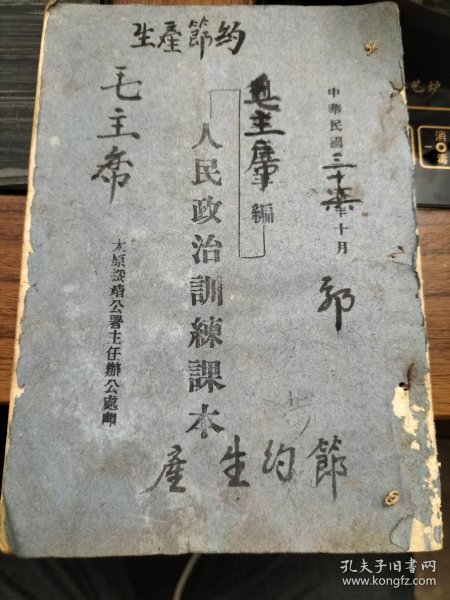 生產節約
中華民國三十年十月
郭
毛主席編
人民政治訓練課本
毛主席
太原綏靖公署主任辦公處印
產生約節
消毒
艺炉
孔夫子旧书网
www.kongfz.com